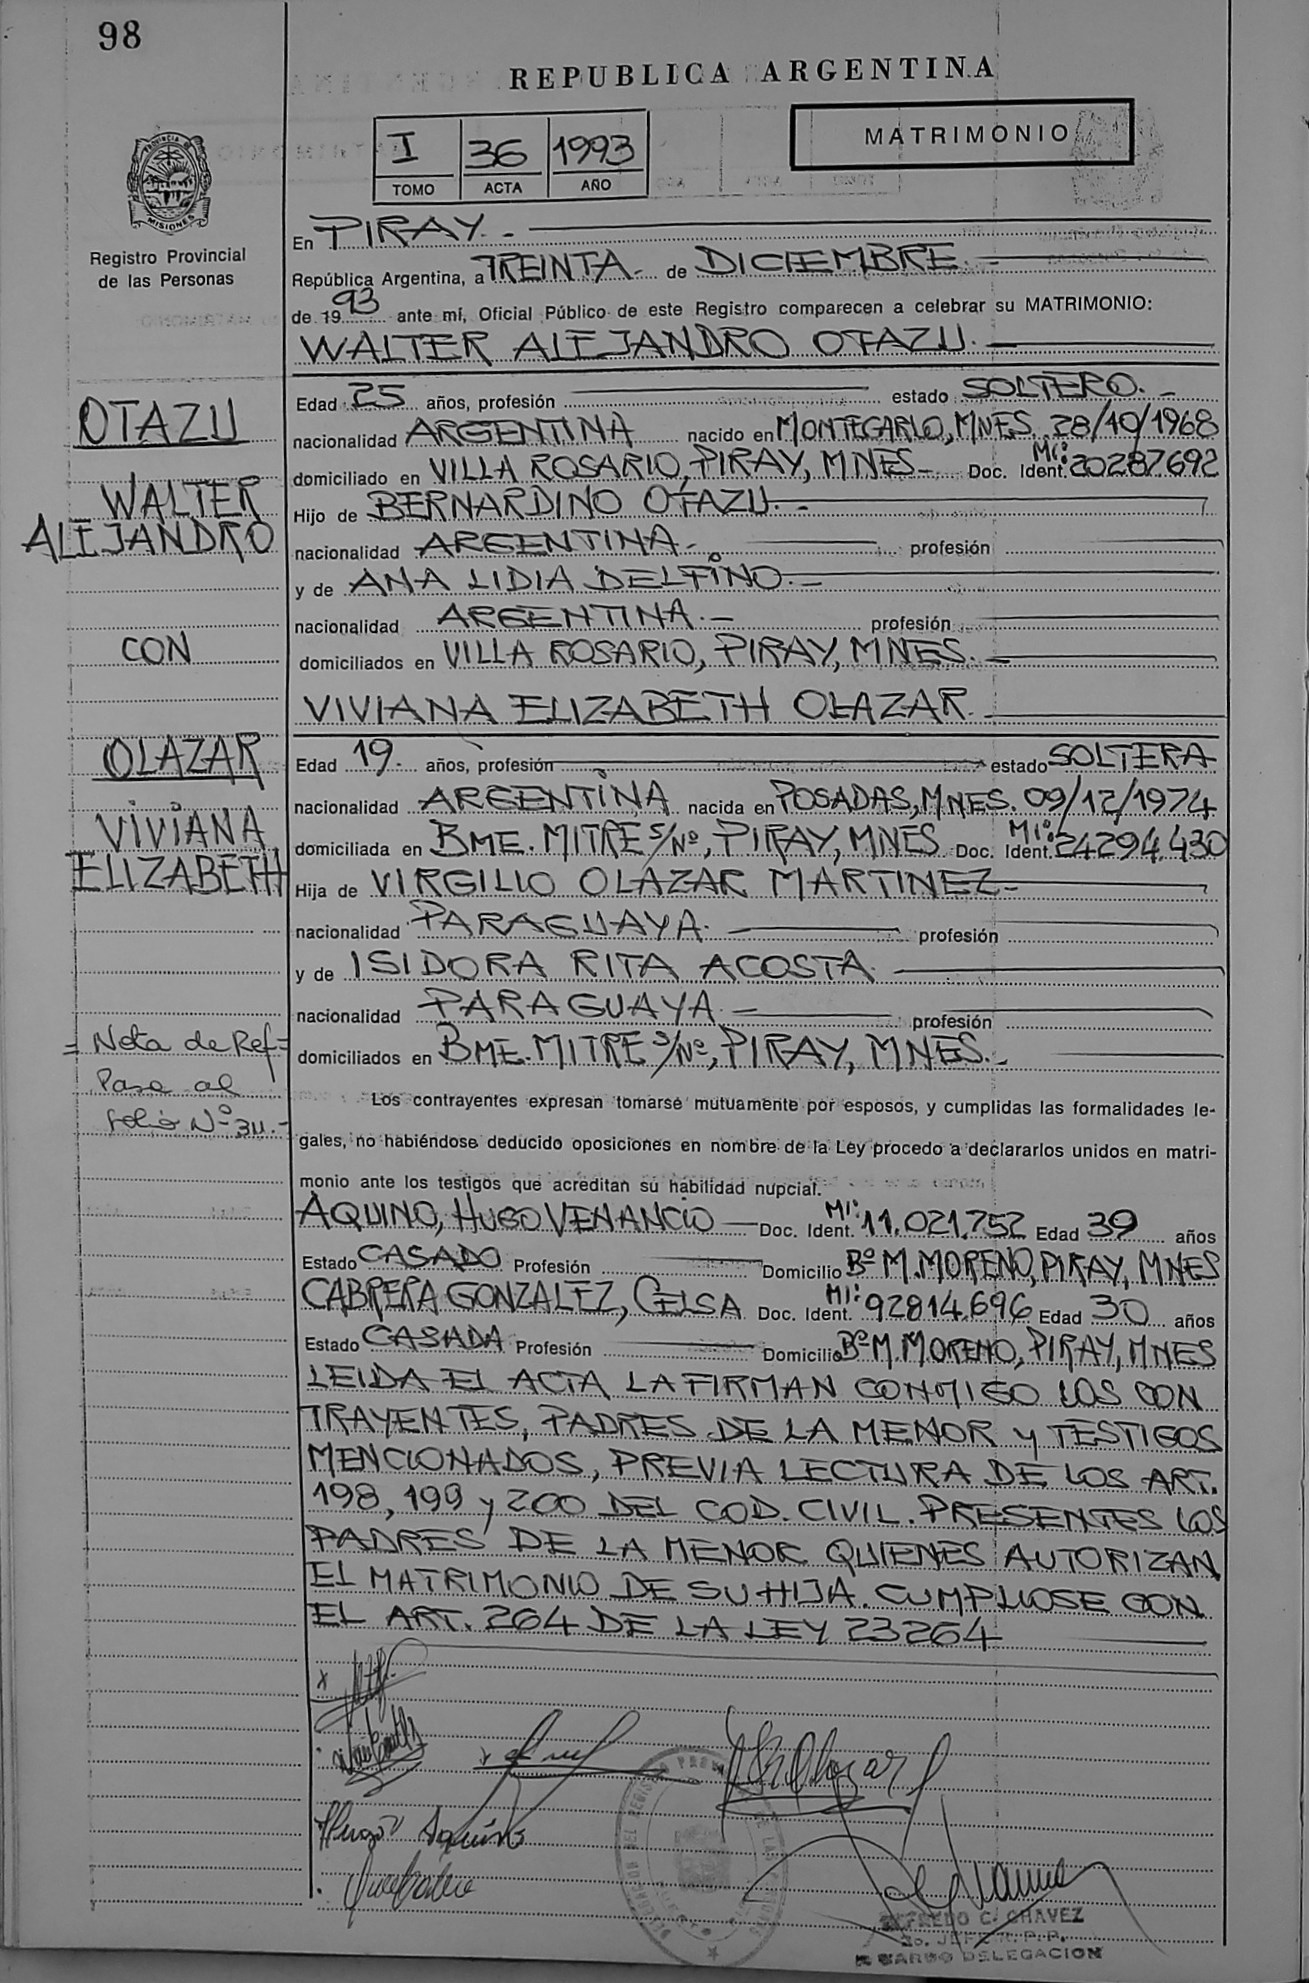 98
REPUBLICA ARGENTINA
I 36 1993
TOMO ACTA AÑO
MATRIMONIO
PROVINCIA DE
MISIONES
Registro Provincial
de las Personas
En PIRAY.-
República Argentina, a TREINTA- de DICIEMBRE.-
de 1993 ante mí, Oficial Público de este Registro comparecen a celebrar su MATRIMONIO:
WALTER ALEJANDRO OTAZU.-
OTAZU
WALTER
ALEJANDRO
CON
OLAZAR
VIVIANA
ELIZABETH
= Nota de Ref=
Pasa al
folio Nº 311.-
Edad 25 años, profesión estado SOLTERO.-
nacionalidad ARGENTINA nacido en MONTECARLO, MNES. 28/10/1968
domiciliado en VILLA ROSARIO, PIRAY, MNES- Doc. Ident. MI: 20287692
Hijo de BERNARDINO OTAZU.-
nacionalidad ARGENTINA.- profesión
y de ANA LIDIA DELFINO.-
nacionalidad ARGENTINA.- profesión
domiciliados en VILLA ROSARIO, PIRAY, MNES.-
VIVIANA ELIZABETH OLAZAR.
Edad 19. años, profesión estado SOLTERA
nacionalidad ARGENTINA nacida en POSADAS, MNES. 09/12/1974
domiciliada en BME. MITRE S/Nº, PIRAY, MNES Doc. Ident. MI: 24294.430
Hija de VIRGILIO OLAZAR MARTINEZ-
nacionalidad PARAGUAYA.- profesión
y de ISIDORA RITA ACOSTA.
nacionalidad PARAGUAYA- profesión
domiciliados en BME. MITRE S/Nº, PIRAY, MNES.-
Los contrayentes expresan tomarse mutuamente por esposos, y cumplidas las formalidades le-
gales, no habiéndose deducido oposiciones en nombre de la Ley procedo a declararlos unidos en matri-
monio ante los testigos que acreditan su habilidad nupcial.
AQUINO, HUGO VENANCIO- Doc. Ident. MI: 11.021.752 Edad 39 años
Estado CASADO Profesión Domicilio Bº M. MORENO, PIRAY, MNES
CABRERA GONZALEZ, CELSA Doc. Ident. MI: 92814.696 Edad 30 años
Estado CASADA Profesión Domicilio Bº M. MORENO, PIRAY, MNES
LEIDA EL ACTA LA FIRMAN CONMIGO LOS CON
TRAYENTES, PADRES DE LA MENOR y TESTIGOS
MENCIONADOS, PREVIA LECTURA DE LOS ART.
198, 199 y 200 DEL COD. CIVIL. PRESENTES LOS
PADRES DE LA MENOR QUIENES AUTORIZAN
EL MATRIMONIO DE SU HIJA. CUMPLIOSE CON
EL ART. 264 DE LA LEY 23264
Hugo V Aquino
ALFREDO C. CHAVEZ
A CARGO DELEGACION